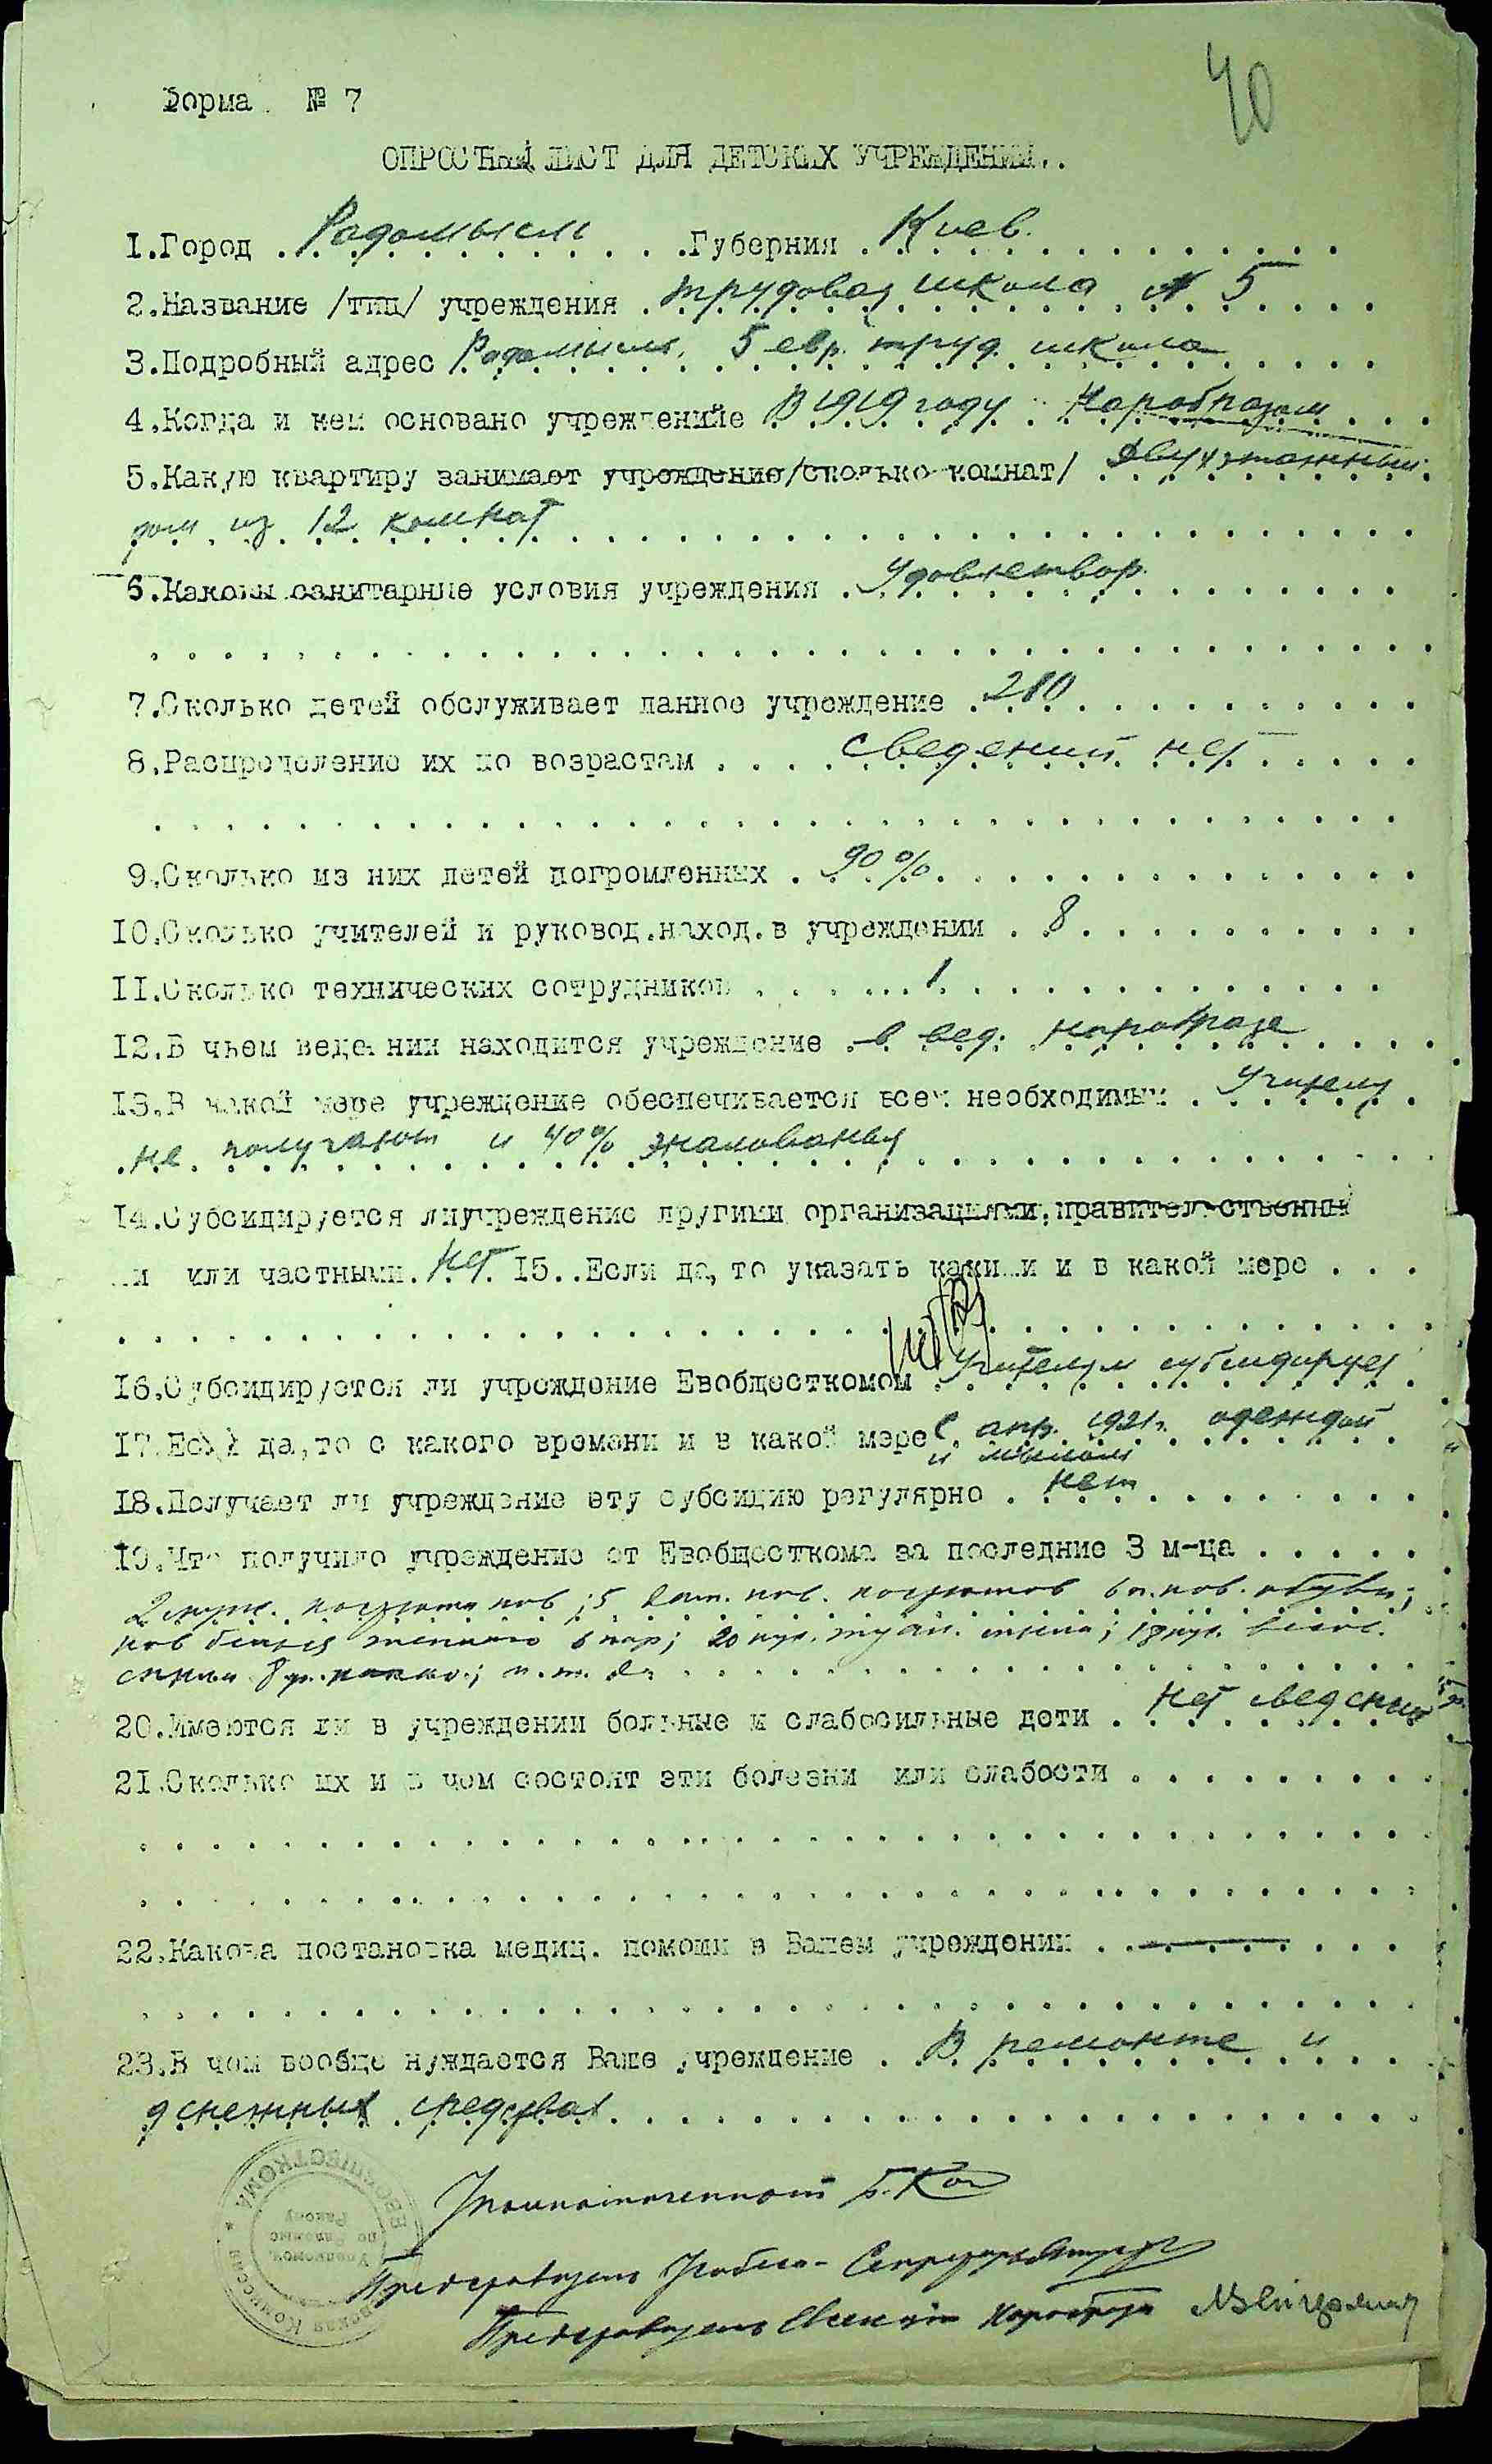 40
Форма № 7
ОПРОСНЫЙ ЛИСТ ДЛЯ ДЕТСКИХ УЧРЕЖДЕНИЙ..
1.Город Радомысль Губерния Киев.
2.Название /тип/ учреждения трудовая школа № 5
3.Подробный адрес Радомысль, 5 евр. труд. школа
4.Когда и кем основано учреждениие В 1919 году Наробразом
5.Какую квартиру занимает учреждение/сколько комнат/ Двухэтажный
дом из 12 комнат
6.Каковы санитарные условия учреждения Удовлетвор.
7.Сколько детей обслуживает данное учреждение 280
8.Распределение их по возрастам сведений нет
9.Сколько из них детей погромленных 90%
10.Сколько учителей и руковод.наход.в учреждении 8
11.Сколько технических сотрудников 1
12.В чьем ведении находится учреждение в вед. наробраза
13.В какой мере учреждение обеспечивается всем необходимым Учителя
не получают и 40% жалованья
14.Субсидируется лиучреждение другими организациями,правительственны
ми или частными. Нет 15..Если да,то указать какими и в какой мере
16.Субсидируется ли учреждение Евобщесткомом Учителям субсидирует
17.Если да,то с какого времени и в какой мере С апр. 1921г. одеждой
и мылом
18.Получает ли учреждение эту субсидию регулярно нет
19.Что получило учреждение от Евобщесткома за последние 3 м-ца
2 муж. костюма нов.; 5 дам. нов. костюмов 6 п. нов. обуви;
нов белья 6 пар; 20 кус. туал. мыла; 18 кус.
8 и. т. д.
20.Имеются ли в учреждении больные и слабосильные дети Нет сведений
21.Сколько их и в чем состоят эти болезни или слабости
22.Какова постановка медиц. помощи в Вашем учреждении —
23.В чем вообще нуждается Ваше учреждение В ремонте и
денежных средствах
Уполномоченный Б. Ког
Председатель Секретарь
Председатель Наробраза
ЕВОБЩЕСТКОМА